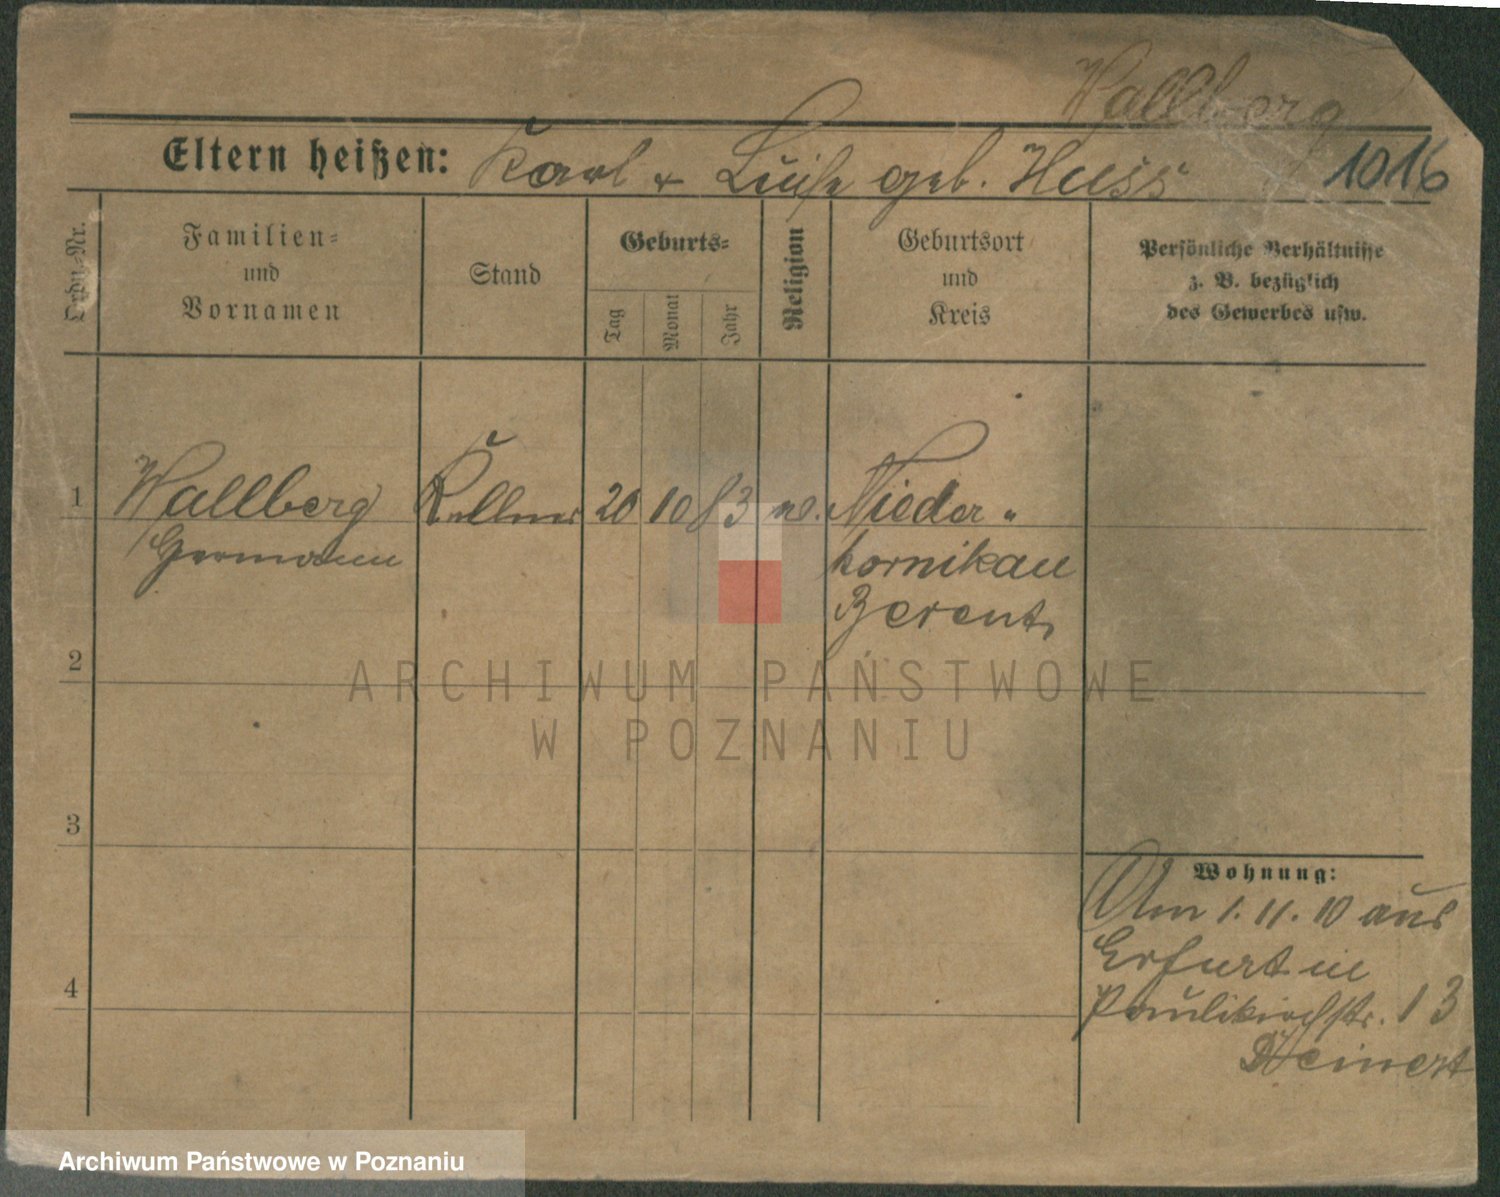 Wallberg
Eltern heißen: Karl + Luise geb. Huss 1016
Ordn.-Nr.
Familien-
und
Vornamen
Stand
Geburts-
Tag
Monat
Jahr
Religion
Geburtsort
und
Kreis
Persönliche Verhältnisse
z. B. bezüglich
des Gewerbes usw.
1 Wallberg Kellner 20 10 83 Nieder-
Hermann
kornikau
Berent
2
3
4
Wohnung:
Am 1. 11. 10 aus
Erfurt in
Paulikirchstr. 13
ARCHIWUM PAŃSTWOWE
W POZNANIU
Archiwum Państwowe w Poznaniu